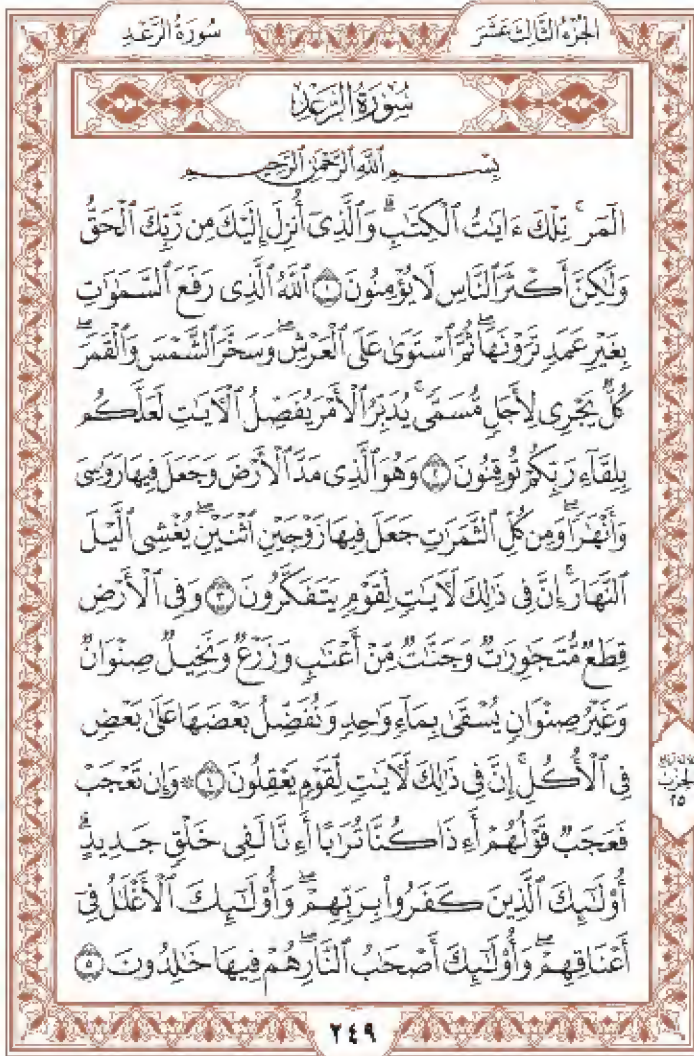 الجزء الثالث عشر
سورة الرعد
سُورَةُ الرَّعْدِ
بِسْمِ ٱللَّهِ ٱلرَّحْمَٰنِ ٱلرَّحِيمِ
الٓمٓر ۚ تِلْكَ ءَايَٰتُ ٱلْكِتَٰبِ ۗ وَٱلَّذِىٓ أُنزِلَ إِلَيْكَ مِن رَّبِّكَ ٱلْحَقُّ
وَلَٰكِنَّ أَكْثَرَ ٱلنَّاسِ لَا يُؤْمِنُونَ ١ ٱللَّهُ ٱلَّذِى رَفَعَ ٱلسَّمَٰوَٰتِ
بِغَيْرِ عَمَدٍ تَرَوْنَهَا ۖ ثُمَّ ٱسْتَوَىٰ عَلَى ٱلْعَرْشِ ۖ وَسَخَّرَ ٱلشَّمْسَ وَٱلْقَمَرَ ۖ
كُلٌّ يَجْرِى لِأَجَلٍ مُّسَمًّى ۚ يُدَبِّرُ ٱلْأَمْرَ يُفَصِّلُ ٱلْءَايَٰتِ لَعَلَّكُم
بِلِقَآءِ رَبِّكُمْ تُوقِنُونَ ٢ وَهُوَ ٱلَّذِى مَدَّ ٱلْأَرْضَ وَجَعَلَ فِيهَا رَوَٰسِىَ
وَأَنْهَٰرًا ۖ وَمِن كُلِّ ٱلثَّمَرَٰتِ جَعَلَ فِيهَا زَوْجَيْنِ ٱثْنَيْنِ ۖ يُغْشِى ٱلَّيْلَ
ٱلنَّهَارَ ۚ إِنَّ فِى ذَٰلِكَ لَءَايَٰتٍ لِّقَوْمٍ يَتَفَكَّرُونَ ٣ وَفِى ٱلْأَرْضِ
قِطَعٌ مُّتَجَٰوِرَٰتٌ وَجَنَّٰتٌ مِّنْ أَعْنَٰبٍ وَزَرْعٌ وَنَخِيلٌ صِنْوَانٌ
وَغَيْرُ صِنْوَانٍ يُسْقَىٰ بِمَآءٍ وَٰحِدٍ وَنُفَضِّلُ بَعْضَهَا عَلَىٰ بَعْضٍ
فِى ٱلْأُكُلِ ۚ إِنَّ فِى ذَٰلِكَ لَءَايَٰتٍ لِّقَوْمٍ يَعْقِلُونَ ٤ ۞ وَإِن تَعْجَبْ
فَعَجَبٌ قَوْلُهُمْ أَءِذَا كُنَّا تُرَٰبًا أَءِنَّا لَفِى خَلْقٍ جَدِيدٍ ۗ
أُو۟لَٰٓئِكَ ٱلَّذِينَ كَفَرُوا۟ بِرَبِّهِمْ ۖ وَأُو۟لَٰٓئِكَ ٱلْأَغْلَٰلُ فِىٓ
أَعْنَاقِهِمْ ۖ وَأُو۟لَٰٓئِكَ أَصْحَٰبُ ٱلنَّارِ ۖ هُمْ فِيهَا خَٰلِدُونَ ٥
الحزب
٢٥
٢٤٩